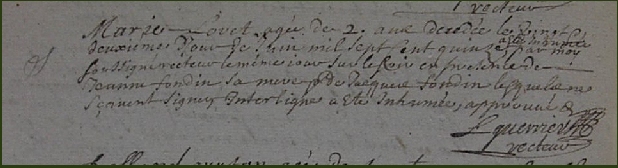 recteur
Marie Lovet agée de 2 ans decedée le vingt
deuxieme jour de juin mil sept cent quinze a été inhumée par moy
soussigné recteur le meme jour sur le soir en presence de
Jeanne Jondin sa mere de Jacques Jondin lesquels ne
sçavent signer interligne a été inhumée, approuvé
Lguerrier
recteur
agée de